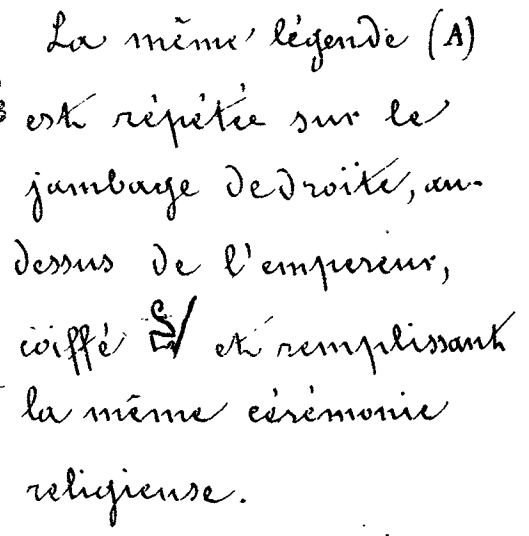 La même légende (A)
est répétée sur le
jambage de droite, au-
dessus de l'empereur,
coiffé 𓋔 et remplissant
la même cérémonie
religieuse.